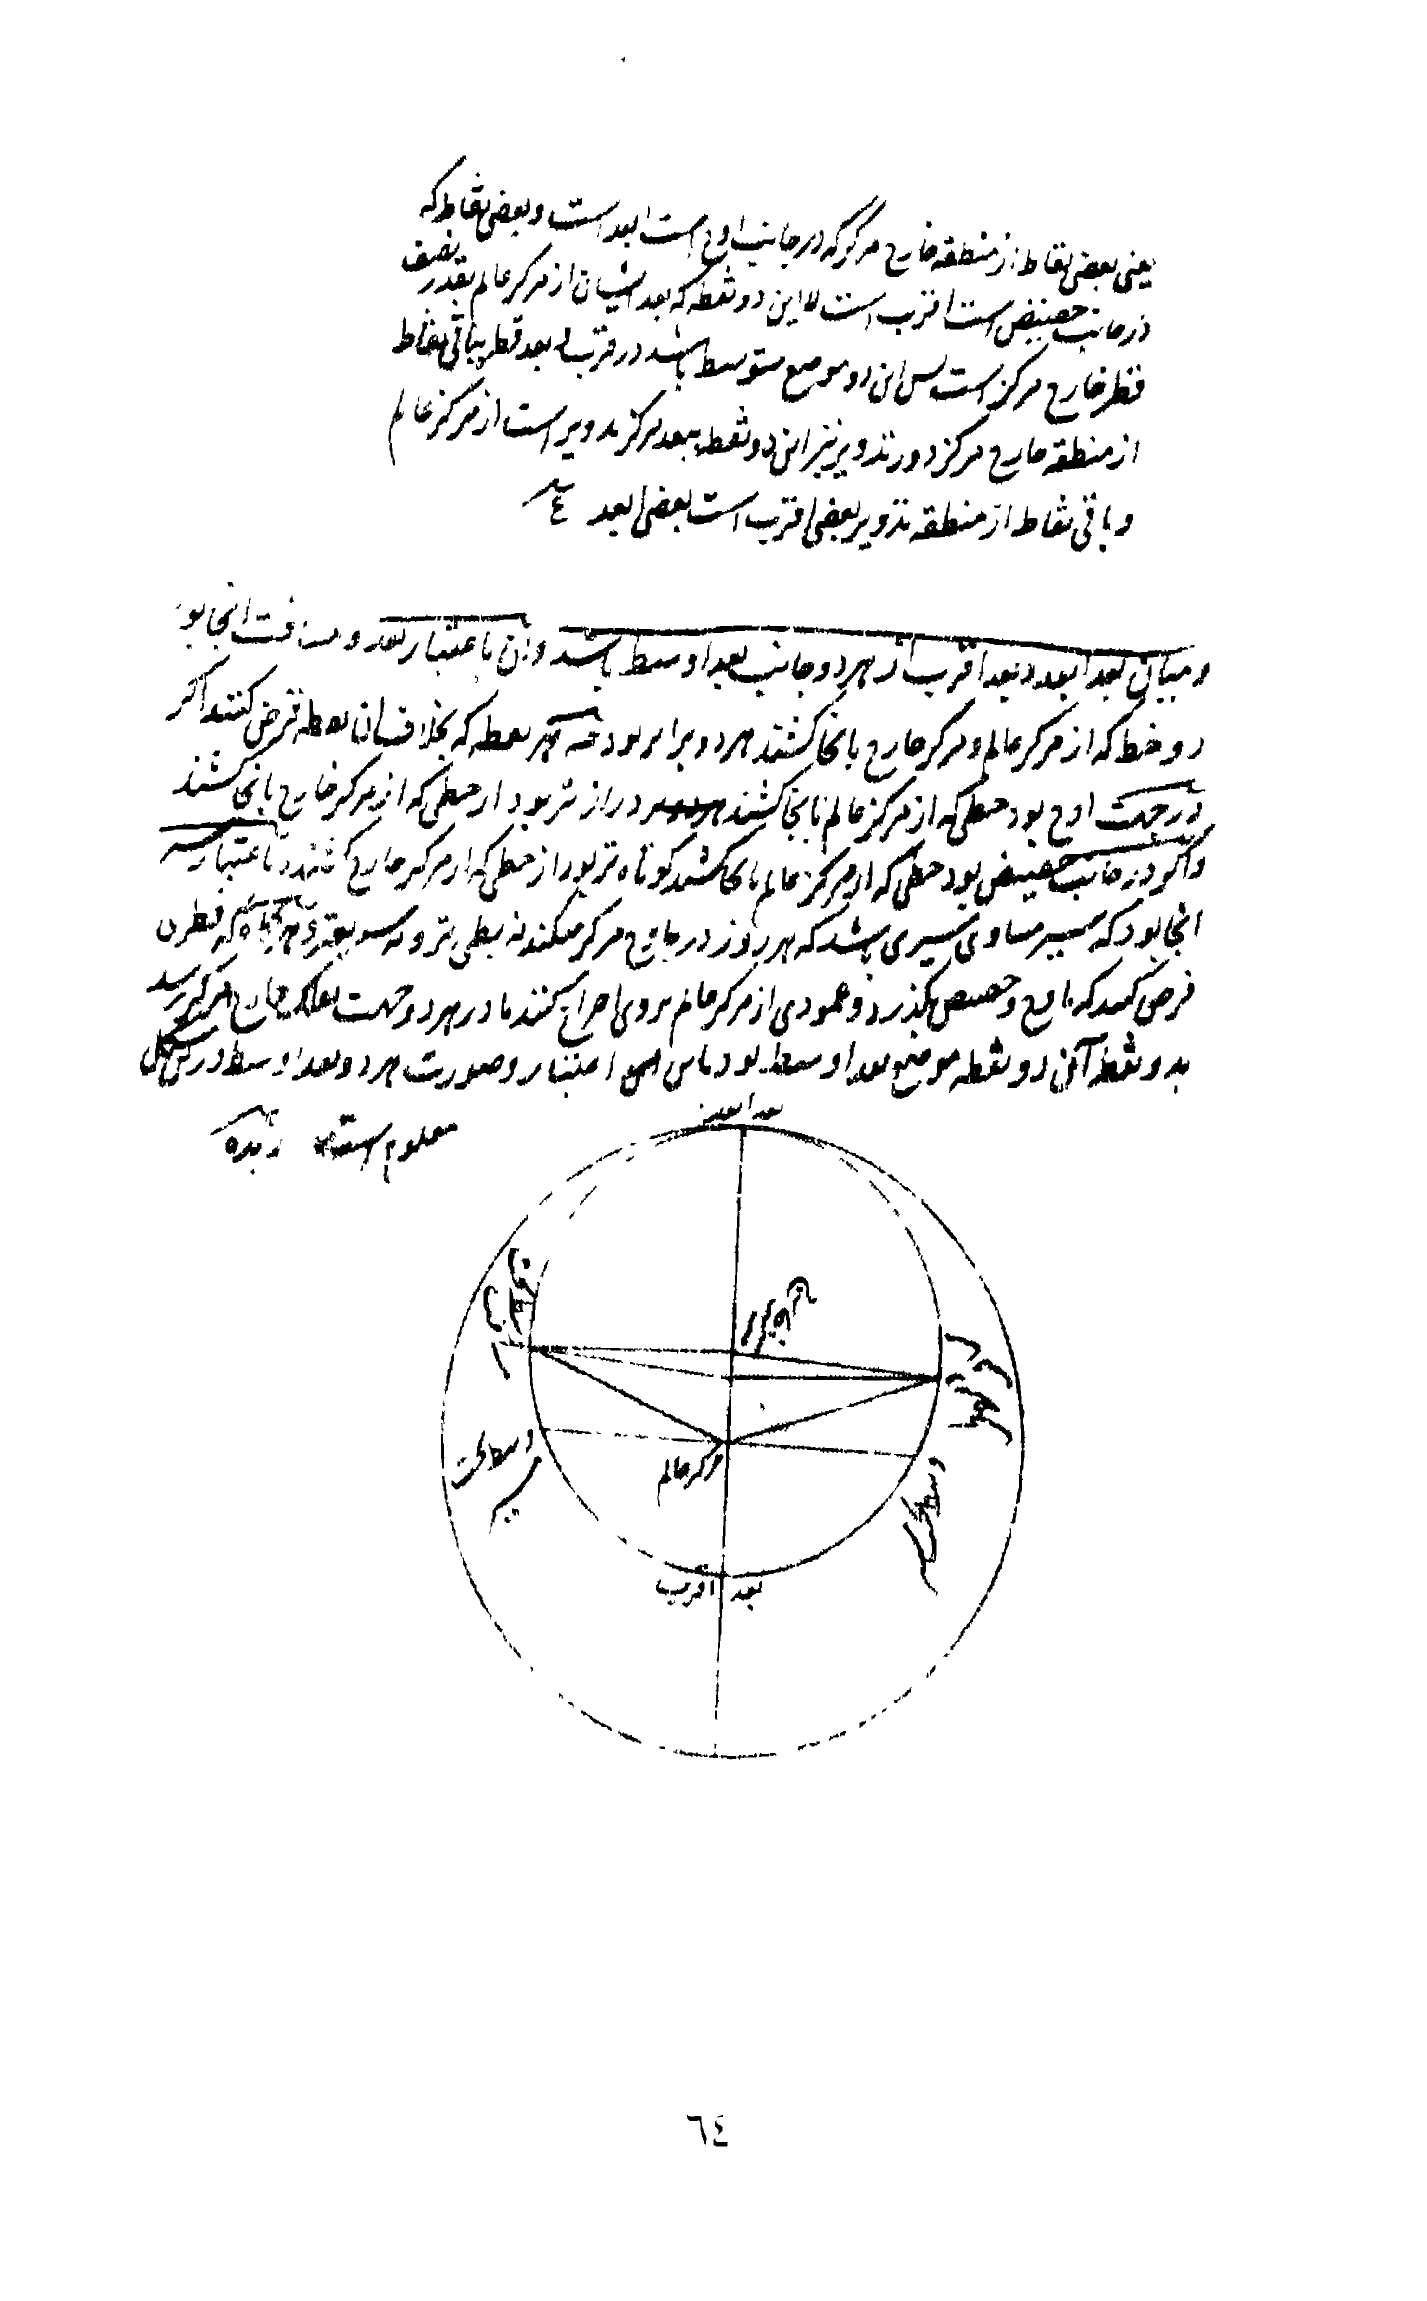 یعنی بعضی نقاط از منطقه خارج مرکز که در جانب اوج است ابعد است و بعضی نقاط که
در جانب حضیض است اقرب است الا این دو نقطه که بعد ایشان از مرکز عالم بقدر نصف
قطر خارج مرکز است پس این دو موضع متوسط باشد در قرب و بعد نظر بباقی نقاط
از منطقه خارج مرکز و در تدویر نیز این دو نقطه ببعد مرکز تدویر است از مرکز عالم
و باقی نقاط از منطقه تدویر بعضی اقرب است بعضی ابعد
و میان بعد ابعد و بعد اقرب از هر دو جانب بعد اوسط باشد و آن باعتبار بعد و مسافت آنجا بود
دو خط که از مرکز عالم و مرکز خارج بانجا کشند هر دو برابر بود چه هر نقطه که بخلاف آن نقطه فرض کنند اگر
در جهت اوج بود خطی که از مرکز عالم بانجا کشند درازتر بود از خطی که از مرکز خارج بانجا کشند
و اگر در جانب حضیض بود خطی که از مرکز عالم بانجا کشند کوتاه تر بود از خطی که از مرکز خارج کشند و باعتبار مسیر
آنجا بود که مسیر مساوی مسیری باشد که هر روز در خارج مرکز میکند نه بطی تر و نه سریعتر و هرگاه که قطری
فرض کنند که باوج و حضیض بگذرد و عمودی از مرکز عالم بروی اخراج کنند تا در هر دو جهت بفلک خارج مرکز رسد
بدو نقطه آن دو نقطه موضع بعد اوسط بود باین اعتبار و صورت هر دو بعد اوسط درین شکل
معلوم است زبده
بعد ابعد
مرکز عالم
وسط بحسب
مسیر
بعد اقرب
٦٤